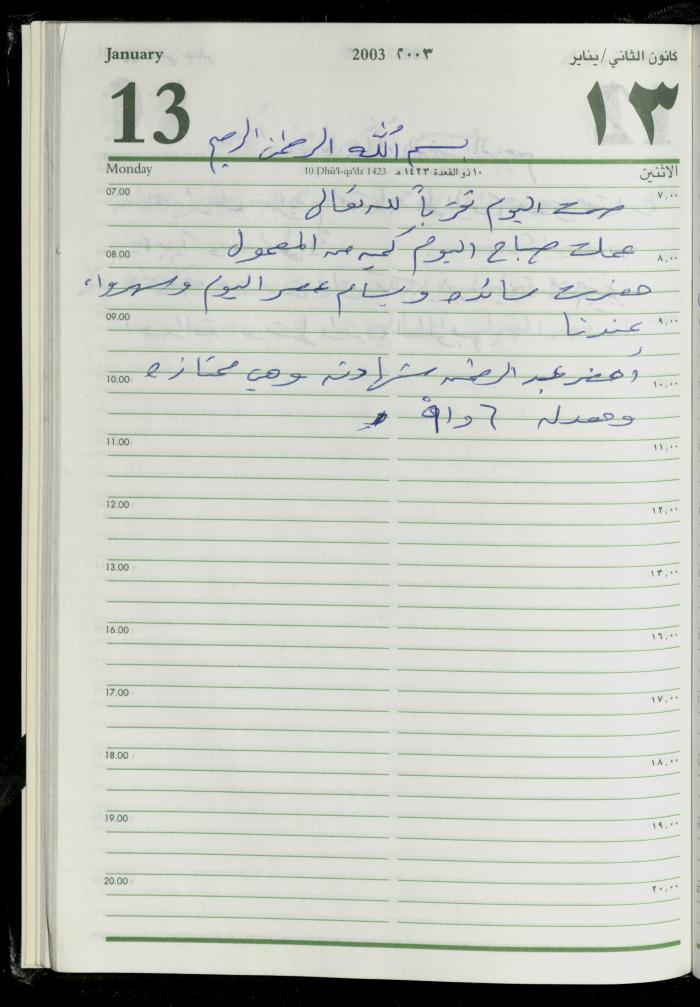 January 2003 ٢٠٠٣ كانون الثاني/يناير
13 ١٣
بسم الله الرحمن الرحيم
Monday 10 Dhū'l-qa'da 1423 ١٠ ذو القعدة ١٤٢٣ هـ الاثنين
07.00 ٧,٠٠
صمت اليوم تقرباً لله تعالى
عملت صباح اليوم كمية من المعمول
08.00 ٨,٠٠
حضرت سائدة وبسام عصر اليوم وسهروا
09.00 ٩,٠٠
عندنا
أحضر عبد الرحمن شهادته وهي ممتازة
10.00 ١٠,٠٠
ومعدله ٦ و٩١
11.00 ١١,٠٠
12.00 ١٢,٠٠
13.00 ١٣,٠٠
16.00 ١٦,٠٠
17.00 ١٧,٠٠
18.00 ١٨,٠٠
19.00 ١٩,٠٠
20.00 ٢٠,٠٠